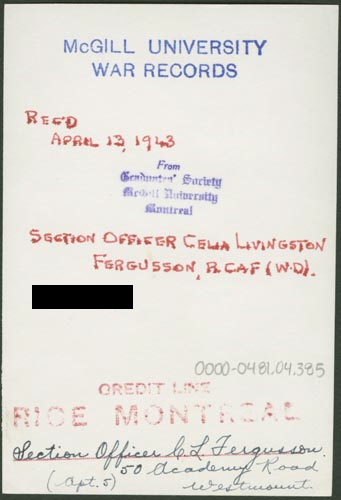 McGILL UNIVERSITY
WAR RECORDS
REC'D
APRIL 13, 1943
From
Graduates' Society
McGill University
Montreal
SECTION OFFICER CELIA LIVINGSTON
FERGUSSON, RCAF (W.D).
0000-0481.04.385
CREDIT LINE
RICE MONTREAL
Section Officer C L Fergusson.
50 Academy Road
(Apt. 5) Westmount.